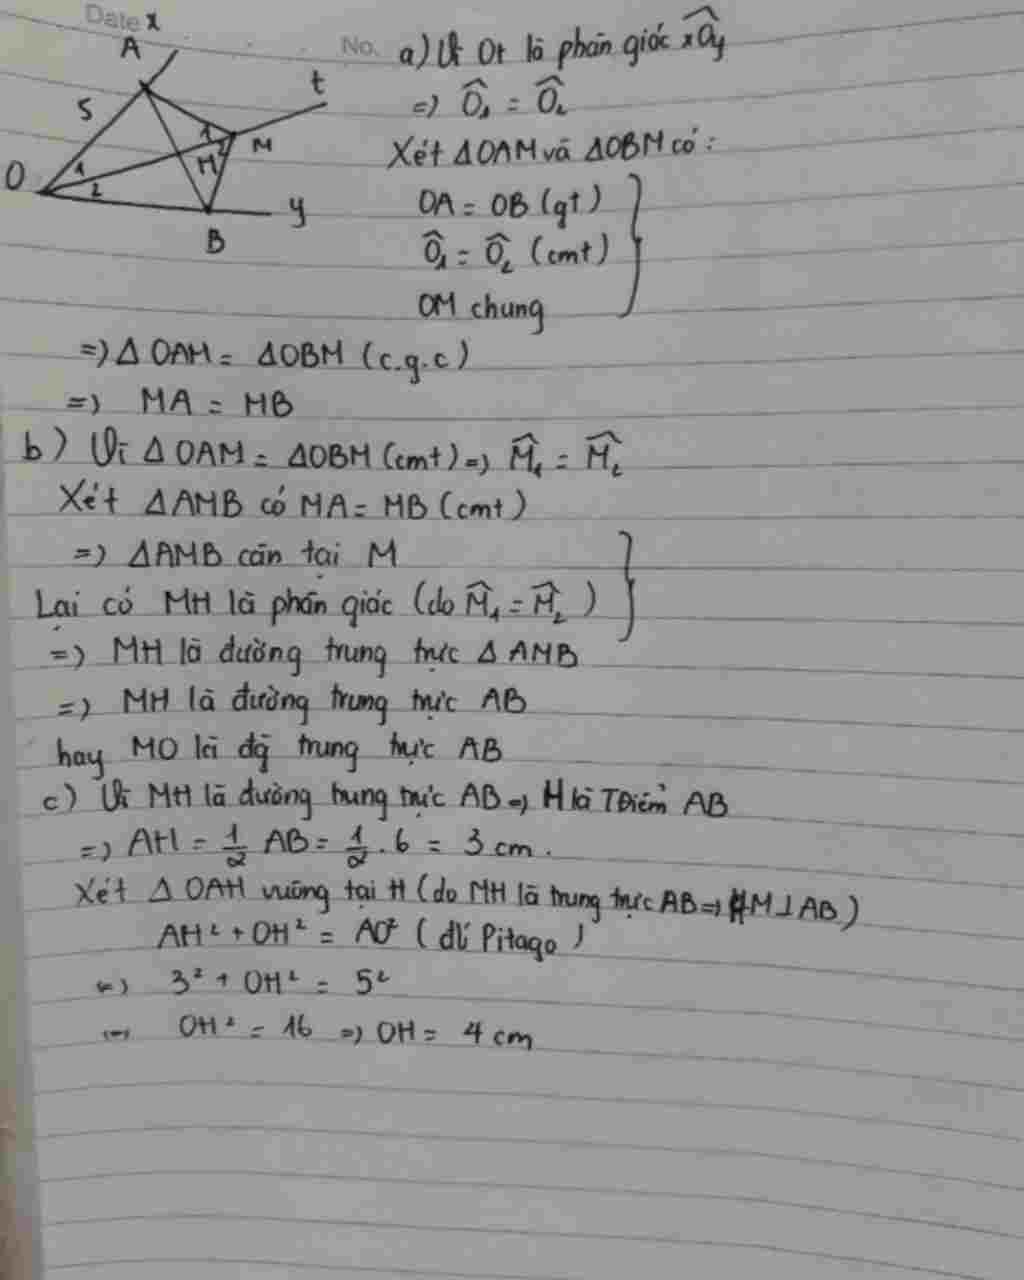 Date x
No.
A
t
5
1
M
H 2
O
1
2
y
B
a) Vì Ot là phân giác xOy
=) Ô1 = Ô2
Xét ΔOAM và ΔOBM có:
OA = OB (gt)
Ô1 = Ô2 (cmt)
OM chung
=) Δ OAM = ΔOBM (c.g.c)
=) MA = MB
b) Vì Δ OAM = ΔOBM (cmt) =) M̂1 = M̂2
Xét ΔAMB có MA = MB (cmt)
=) ΔAMB cân tại M
Lại có MH là phân giác (do M̂1 = M̂2)
=) MH là đường trung trực Δ AMB
=) MH là đường trung trực AB
hay MO là đg trung trực AB
c) Vì MH là đường trung trực AB =) H là TĐiểm AB
=) AH = 1/2 AB = 1/2 . 6 = 3 cm.
Xét Δ OAH vuông tại H (do MH là trung trực AB =) HM ⊥ AB)
AH² + OH² = AO² (đlí Pitago)
(=) 3² + OH² = 5²
(=) OH² = 16 =) OH = 4 cm